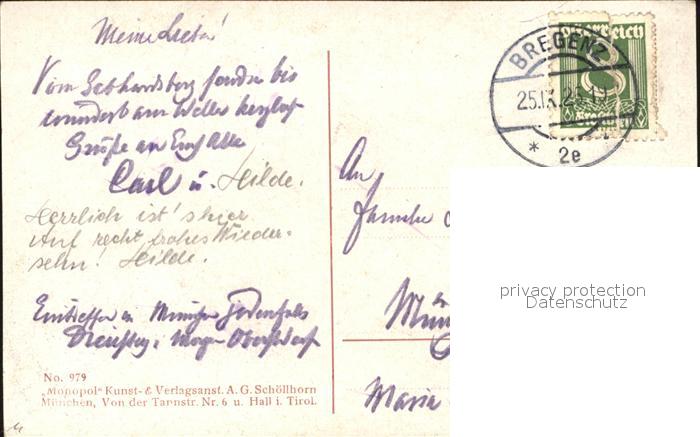 Meine Lieta!
Vom Gebhardsberg senden bis
wundervollem Wetter herzlichst
Grüße an Euch Alle
Carl u. Hilde.
Herrlich ist's hier
Auf recht frohes Wieder-
sehn! Hilde.
Eintreffen in München jedenfalls
Dienstag, Morgen Oberstdorf
No. 979
„Monopol" Kunst- & Verlagsanst. A. G. Schöllhorn
München, Von der Tannstr. Nr. 6 u. Hall i. Tirol.
Österreich
8
Groschen
BREGENZ
25.IX.25
* 2e
An
Familie
Mün
Maria
privacy protection
Datenschutz